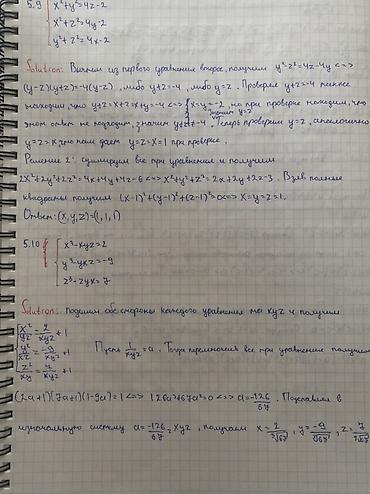 5.9 { x²+y²=4z-2
x²+z²=4y-2
y²+z²=4x-2
Solution: Вычтем из первого уравнения второе, получим y²-z²=4z-4y <=>
(y-z)(y+z)=-4(y-z), либо y+z=-4, либо y=z. Проверяя y+z=-4
находим, что y+z=x+z=x+y=-4 <=> x=y=-2, но при проверке находим, что
этот ответ не подходит, значит y+z≠-4. Теперь проверяем y=z, аналогично
y=z=x, что нам дает y=z=x=1 при проверке.
Решение 2: суммируем все три уравнения и получим
2x²+2y²+2z²=4x+4y+4z-6 <=> x²+y²+z²=2x+2y+2z-3. Взяв полные
квадраты получим (x-1)²+(y-1)²+(z-1)²=0 <=> x=y=z=1.
Ответ: (x,y,z)=(1,1,1)
5.10 { x³-xyz=2
y³-yxz=-9
z³-zyx=7
Solution: поделим обе стороны каждого уравнения на xyz и получим
x²/yz=2/xyz+1
y²/xz=-9/xyz+1 Пусть 1/xyz=a. Тогда перемножая все три уравнения получим
z²/xy=7/xyz+1
(2a+1)(7a+1)(1-9a)=1 <=> 126a³+67a²=0 <=> a=-126/67. Подставим в
изначальную систему a=-126/67=xyz, получаем x=2/∛67, y=-9/∛67, z=7/∛67